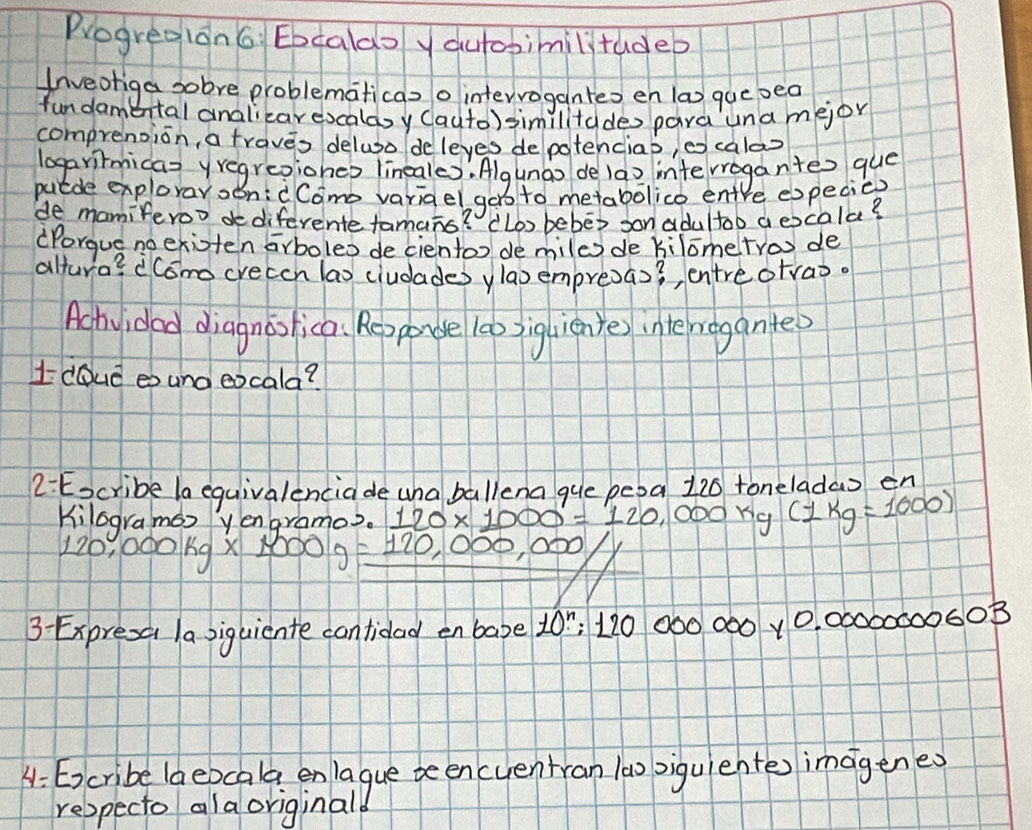 Progresión 6: Escalas y autosimilitudes
Investiga sobre problemáticas o interrogantes en las que sea
fundamental analizar escalas y (auto)similitudes para una mejor
comprensión, a través del uso de leyes de potencias, escalas
logarítmicas y regresiones lineales. Algunas de las interrogantes que
puede explorar son: ¿Cómo varía el gasto metabólico entre especies
de mamíferos de diferente tamaño? ¿Los bebés son adultos a escala?
¿Porque no existen árboles de cientos de miles de kilómetros de
altura? ¿Cómo crecen las ciudades y las empresas?, entre otras.
Actividad diagnóstica. Responde las siguientes interrogantes
1- ¿Qué es una escala?
2- Escribe la equivalencia de una ballena que pesa 120 toneladas en
Kilogramos y en gramos. 120 x 1000 = 120,000 Kg (1 Kg = 1000)
120,000 Kg x 1000 g = 120,000,000 //
3- Expresa la siguiente cantidad en base 10ⁿ: 120 000 000 y 0.00000000603
4- Escribe la escala en la que se encuentran las siguientes imágenes
respecto a la original